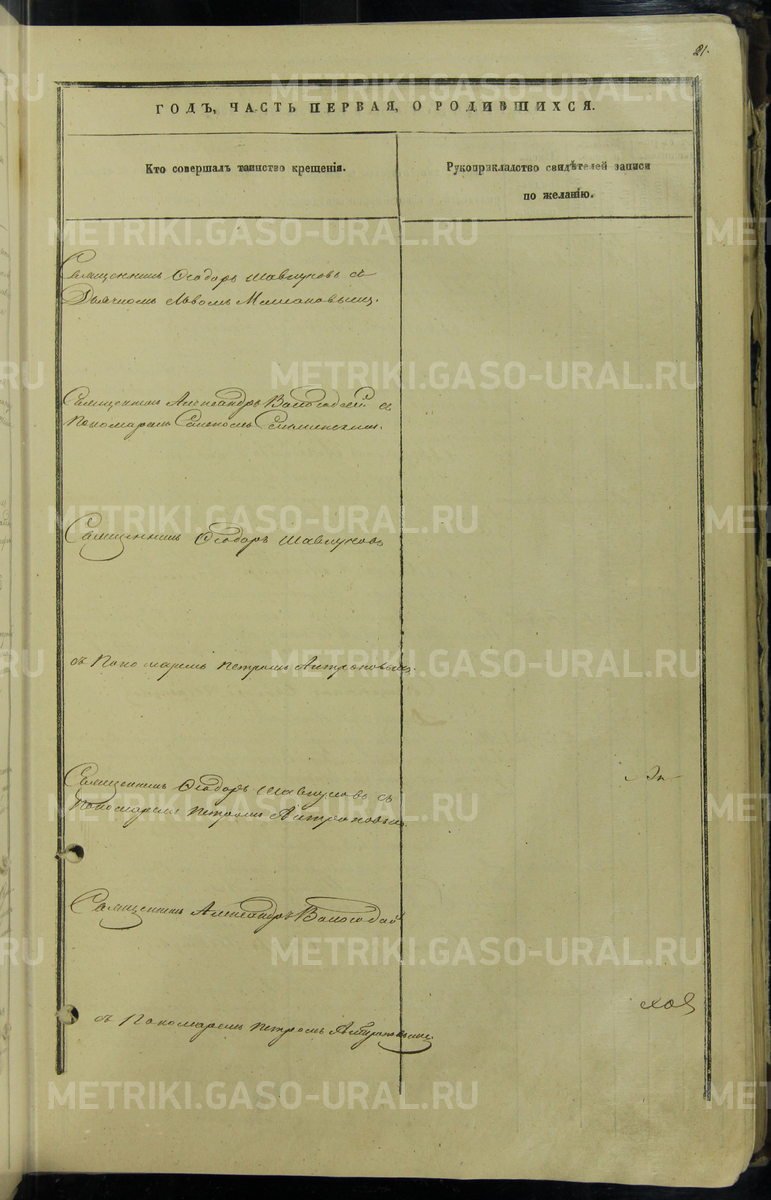 21.
ГОДЪ, ЧАСТЬ ПЕРВАЯ, О РОДИВШИХСЯ.
Кто совершалъ таинство крещенія.
Рукоприкладство свидѣтелей записи
по желанію.
Священникъ Ѳеодоръ Шавкуновъ съ
Дьячкомъ Львомъ
Священникъ Александръ
Пономаремъ
Священникъ Ѳеодоръ Шавкуновъ
съ Пономаремъ Петромъ Антроповымъ.
Священникъ Ѳеодоръ Шавкуновъ съ
Пономаремъ Петромъ Антроповымъ.
Священникъ Александръ
съ Пономаремъ Петромъ Антроповымъ.
METRIKI.GASO-URAL.RU